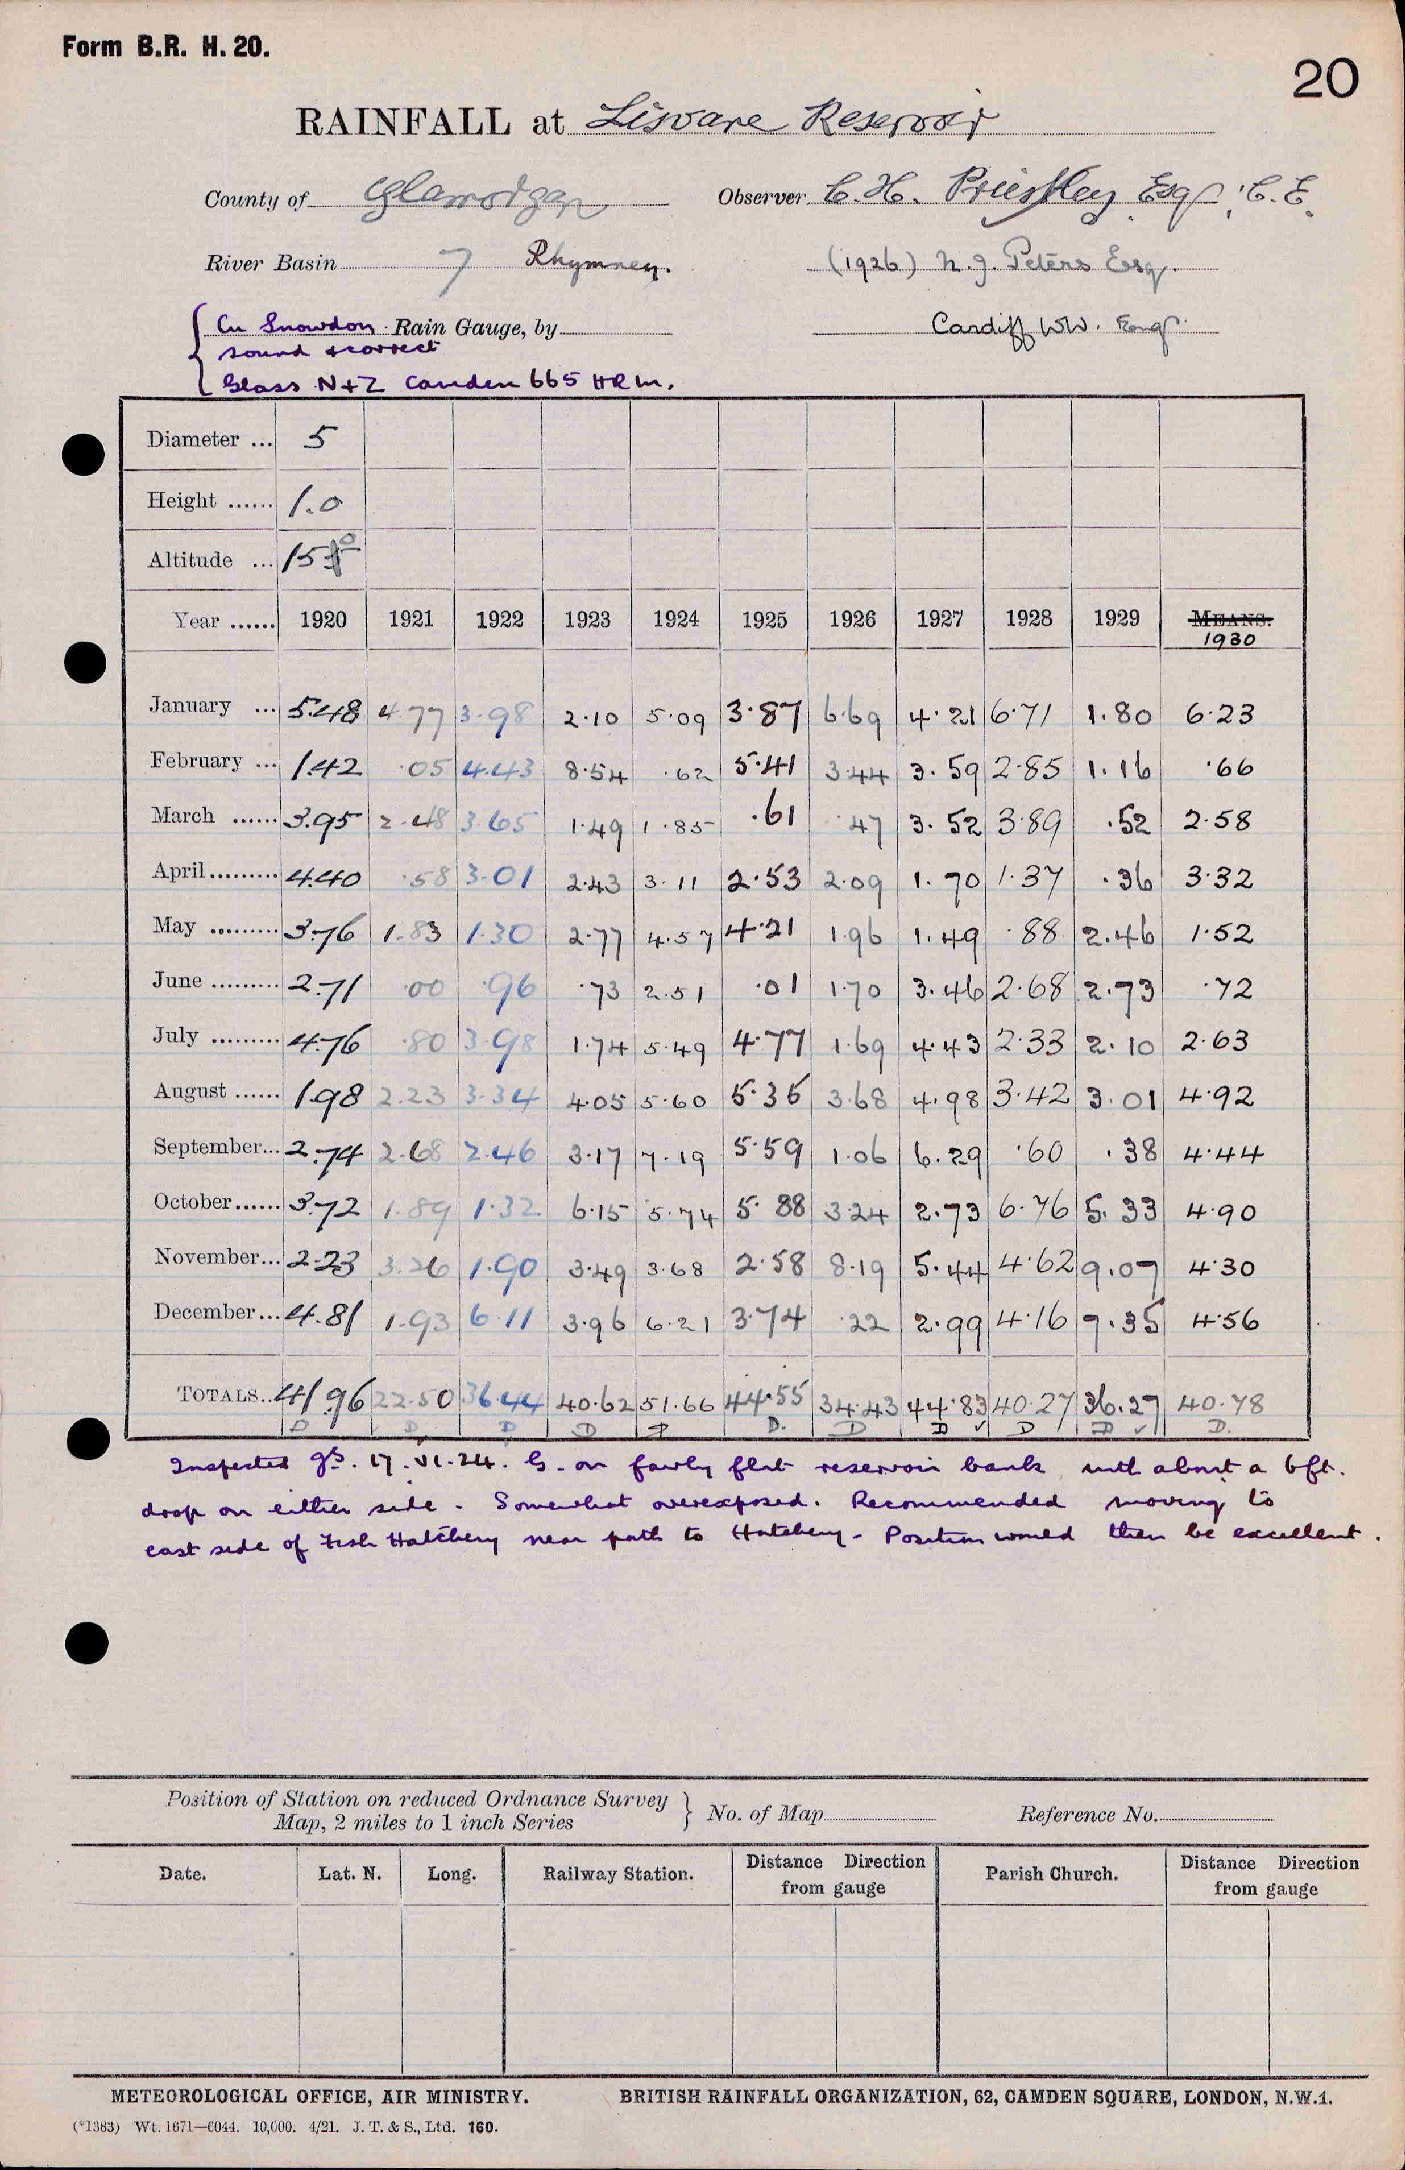 Form B.R. H. 20.
20
RAINFALL at Lisvane Reservoir
County of Glamorgan Observer C. H. Priestley Esq., C.E.
River Basin 7 Rhymney. (1926) N. J. Peters Esq.
{ Cu Snowdon Rain Gauge, by Cardiff W.W. Eng.
sound & correct
Glass N+Z Camden 665 HRM.
Diameter ... 5
Height ...... 1.0
Altitude ... 15
Year ...... 1920 1921 1922 1923 1924 1925 1926 1927 1928 1929 MEANS.
1930
January ... 5.48 4.77 3.98 2.10 5.09 3.87 6.69 4.21 6.71 1.80 6.23
February ... 1.42 .05 4.43 8.54 .62 5.41 3.44 3.59 2.85 1.16 .66
March ...... 3.95 2.48 3.65 1.49 1.85 .61 .47 3.52 3.89 .52 2.58
April ......... 4.40 .58 3.01 2.43 3.11 2.53 2.09 1.70 1.37 .36 3.32
May ......... 3.76 1.83 1.30 2.77 4.57 4.21 1.96 1.49 .88 2.46 1.52
June ......... 2.71 .00 .96 .73 2.51 .01 1.70 3.46 2.68 2.73 .72
July ......... 4.76 .80 3.98 1.74 5.49 4.77 1.69 4.43 2.33 2.10 2.63
August ...... 1.98 2.23 3.34 4.05 5.60 5.35 3.68 4.98 3.42 3.01 4.92
September... 2.74 2.68 2.46 3.17 7.19 5.59 1.06 6.29 .60 .38 4.44
October ...... 3.72 1.89 1.32 6.15 5.74 5.88 3.24 2.73 6.76 5.33 4.90
November... 2.23 3.26 1.90 3.49 3.68 2.58 8.19 5.44 4.62 9.07 4.30
December... 4.81 1.93 6.11 3.96 6.21 3.74 .22 2.99 4.16 7.35 4.56
TOTALS.. 41.96 22.50 36.44 40.62 51.66 44.55 34.43 44.83 40.27 36.27 40.78
D D D D D D. D D ✓ D D ✓ D.
Inspected 17.VI.24. G. on fairly flat reservoir bank with about a 6ft.
drop on either side. Somewhat overexposed. Recommended moving to
east side of Fish Hatchery near path to Hatchery. Position would then be excellent.
Position of Station on reduced Ordnance Survey
Map, 2 miles to 1 inch Series } No. of Map Reference No.
Date. Lat. N. Long. Railway Station. Distance Direction from gauge Parish Church. Distance Direction from gauge
METEOROLOGICAL OFFICE, AIR MINISTRY. BRITISH RAINFALL ORGANIZATION, 62, CAMDEN SQUARE, LONDON, N.W.1.
(*1383) Wt. 1671—6044. 10,000. 4/21. J. T. & S., Ltd. 160.